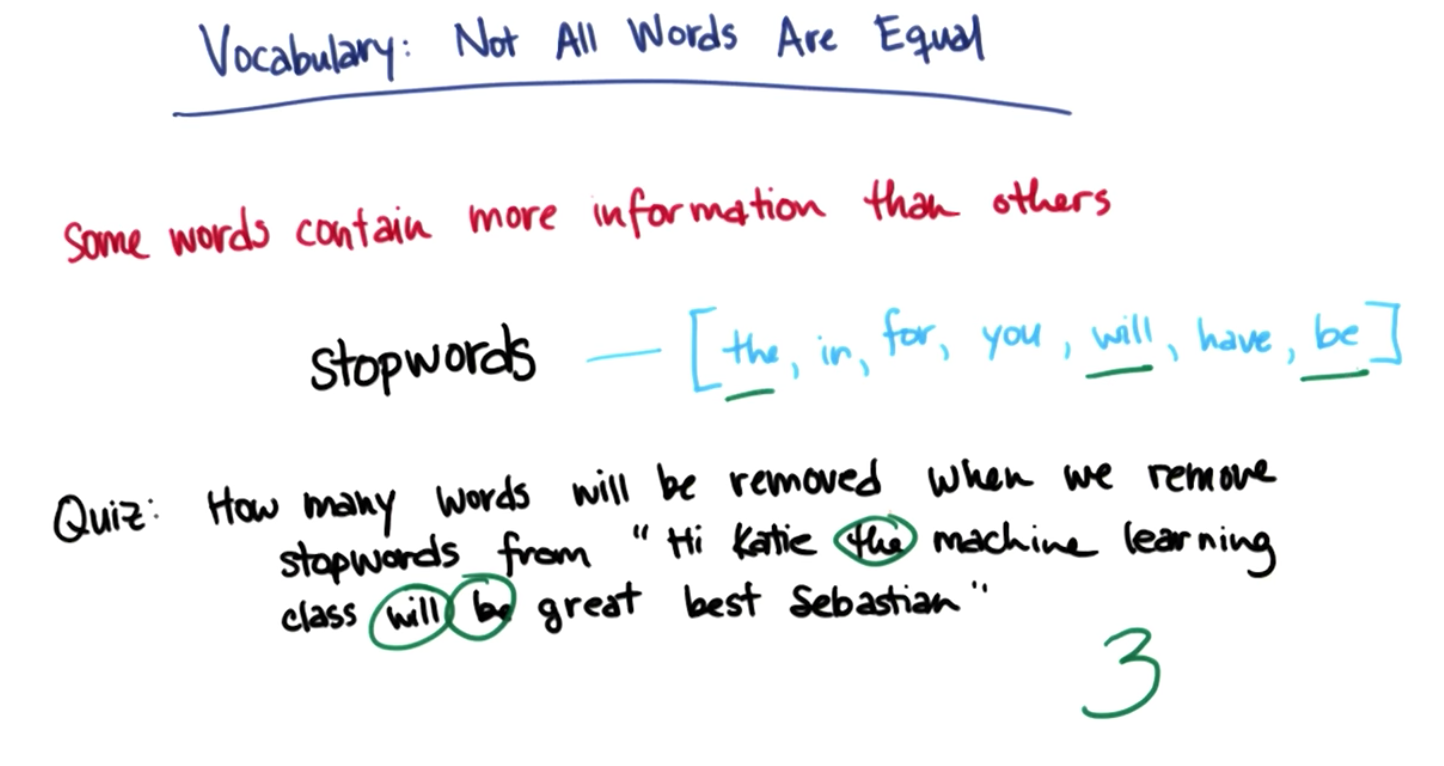 Vocabulary: Not All Words Are Equal
Some words contain more information than others
stopwords — [the, in, for, you, will, have, be]
Quiz: How many words will be removed when we remove
stopwords from "Hi Katie the machine learning
class will be great best Sebastian"
3